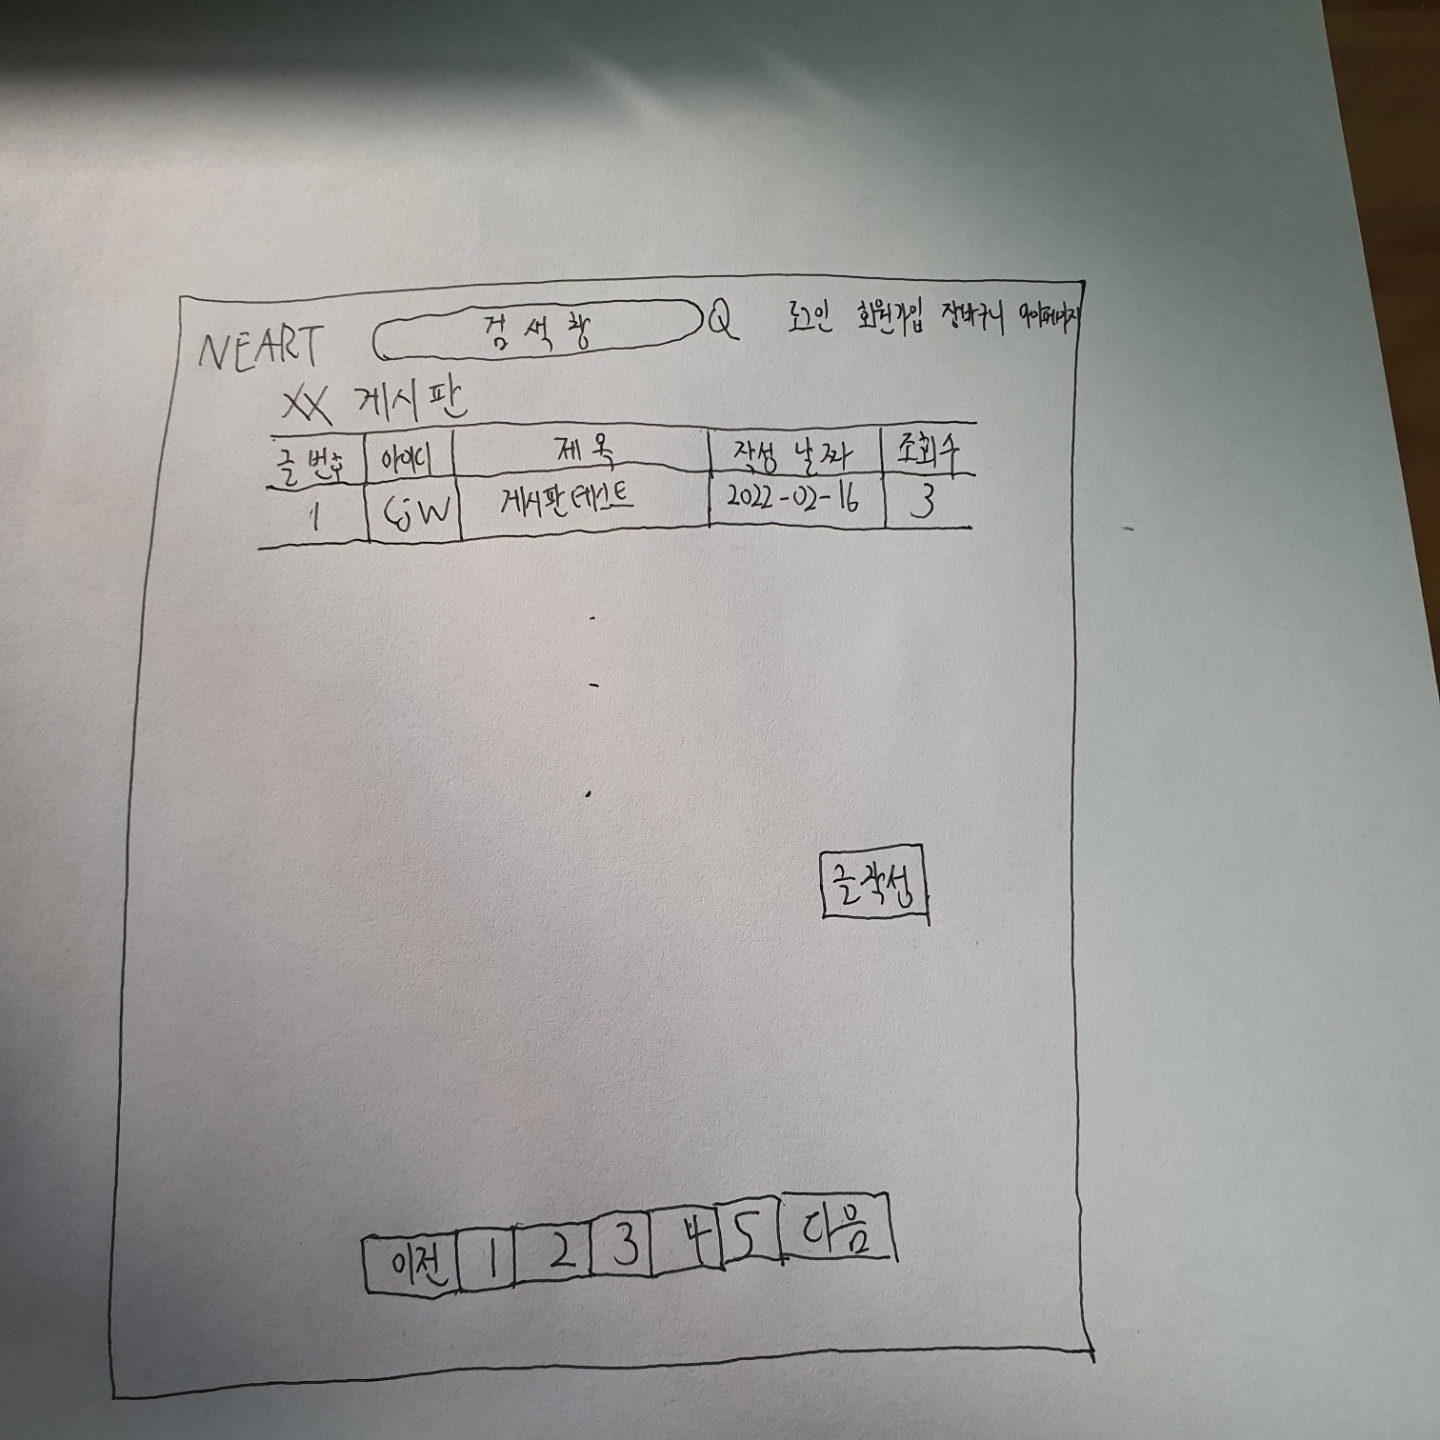 NEART 검색창 Q 로그인 회원가입 장바구니 마이페이지
XX 게시판
글 번호 아이디 제목 작성 날짜 조회수
1 게시판 테스트 2022-02-16 3
글작성
이전 1 2 3 4 5 다음